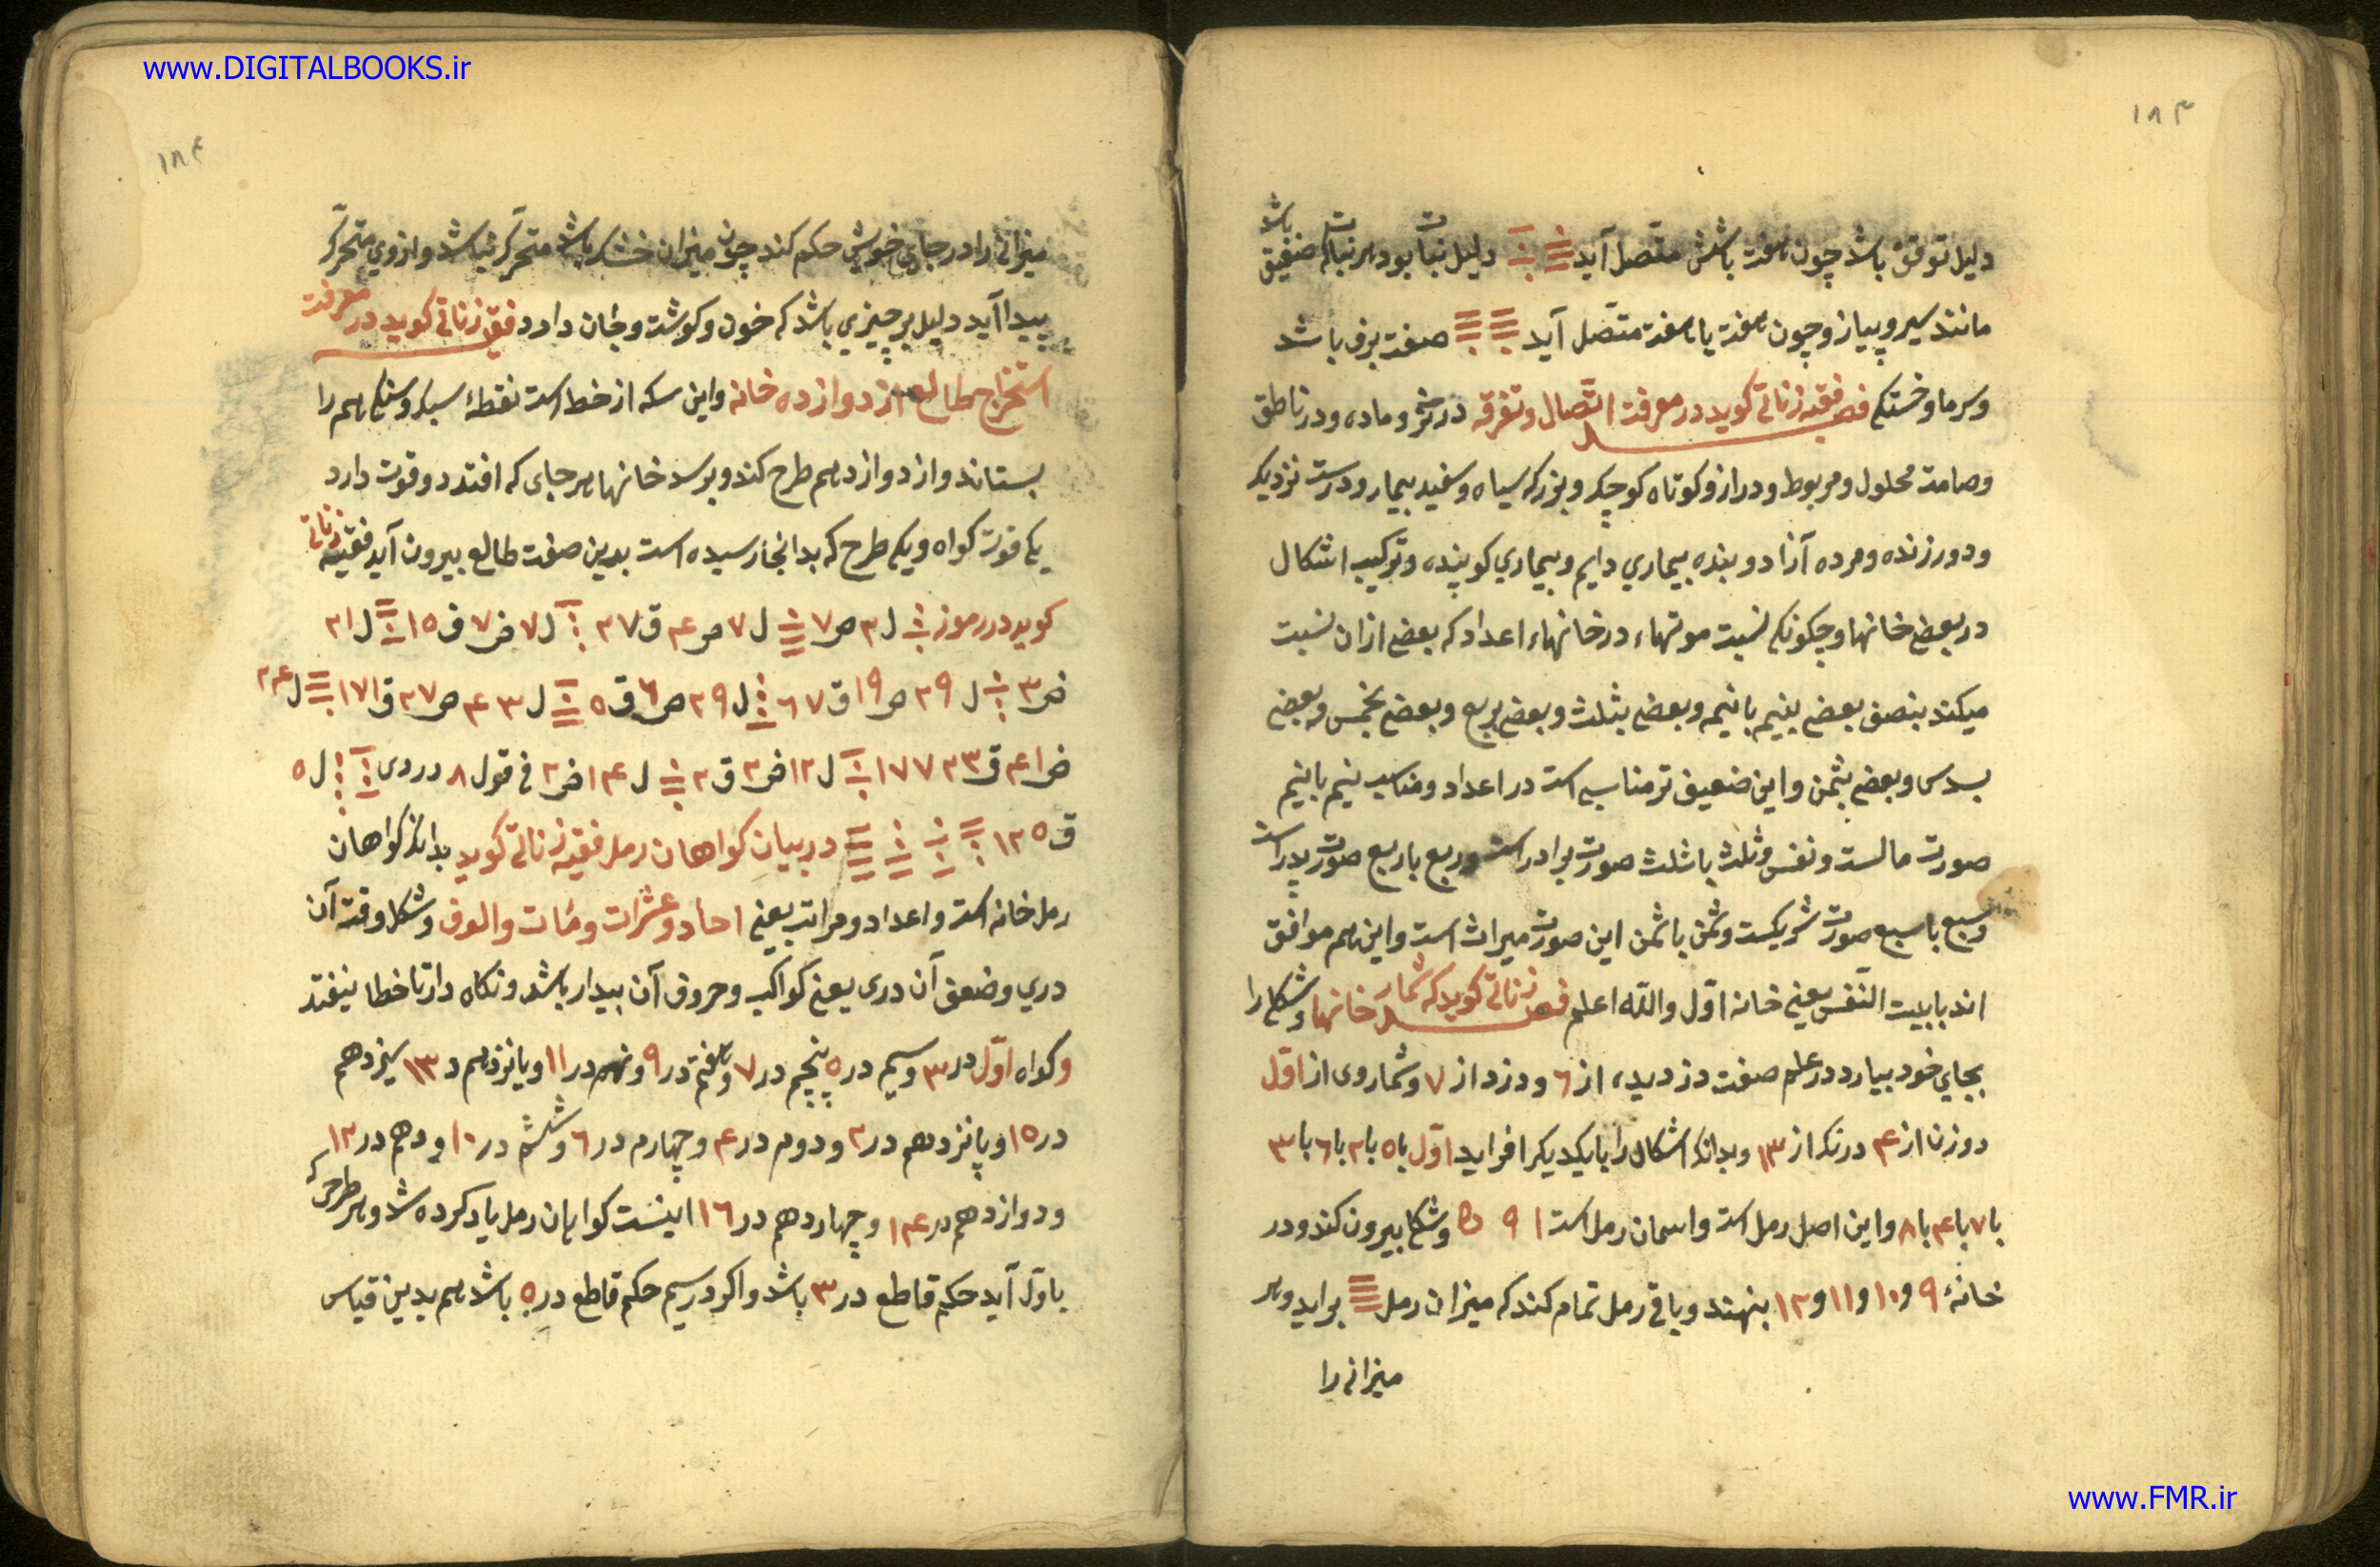 www.DIGITALBOOKS.ir
۱۸۳
دلیل توقف باشد چون هفت باشش متصل آید دلیل نبات بود هر نباتکه ضعیق باشد
مانند سیر و پیاز و چون هفت یا هفت متصل آید صفت برف باشد
و سرما و خستکی فصـ فقیه زناتی کوید در معرفت اتصال و تفرقه در نر و ماده و در ناطق
و صامت محلول و مربوط و دراز و کوتاه کوچک و بزرکه سیاه و سفید بیمار و درست نزدیک
و دور زنده و مرده آزاد و بنده بیماري دایم و بیماري کوینده و ترکیب اشکال
در بعضی خانها و چکونکی نسبت موتهاء در خانهاء اعداد که بعضی ازان نسبت
میکند بنصف بعضی بنیم بانیمه و بعضی بثلث و بعضی بربع و بعضی بخمس و بعضی
بسدس و بعضی بثمن و این ضعیف تر مناسبه است در اعداد و مناسب نیم بانیم
صورت مالست و نفس و ثلث باثلث صورت برادر است و ربع باربع صورت پدر است
و سبع باسبع صورت شریکست و ثمن باثمن این صورت میراث است و این هم موافق
اند بابیت النفس یعنی خانه اول والله اعلم فصـ زناتی کوید که شمار خانها و شکل را
بجاي خود بیارد در علم صفت دزدیده از ٦ و دزد از ۷ و شمار وی از اول
دوزن از ۴ درنکه از ۱۳ و بدانکه اشکال را بایکدیکر افراید اول با ۵ با ۲ با ٦ با ۳
با ۷ با ۴ با ۸ و این اصل رمل است و اسمان رمل است ۱ ۹ ۵ و شکل بیرون کند و در
خانهٔ ۹ و ۱۰ و ۱۱ و ۱۲ بنهند و باقی رمل تمام کند که میزان رمل براید و هر
میزانی را
۱۸۴
میزانی را در جاي خویش حکم کند چون میزان خشک باشد متحرک نباشد و از وي متحرک
پیدا آید دلیل بر چیزي باشد که خون و کوشت و جان دارد فقیه زناتی کوید در معرفت
استخراج طالع از دوازده خانه و این سکه از خط است نقطهٔ سبک و سنکی هم را
بستاند و از دوازدهم طرح کند و برسد خانها هر جای که افتد دو قوت دارد
یکی قوت کواه و یکی طرح که بدانجا رسیده است بدین صفت طالع بیرون آید فقیه زناتی
کوید در رموز ل ۳ ص ۷ ل ۷ ص ۴ ق ۳۷ ل ۷ ض ۷ ق ۱۵ ل ۳۱
ض ۳ ل ۳۹ ص ۱۹ ق ٦۷ ل ۳۹ ص ٦ ق ۵ ل ۴۳ ص ۳۷ ق ۱۷۱ ل ۲۴
ض ۴۱ ق ۱۷۷۲۳ ل ۱۲ ض ۲ ق ۲ ل ۱۴ ض ۲ فی قول ۸ در دی ل ۵
ق ۱۲۵ در بیان کواهان رمل فقیه زناتی کوید بدانکه کواهان
رمل خانه است و اعداد و مراتب یعنی احاد و عشرات و مٔات و الوف و شکل و قت آن
دري و ضعف آن دری یعنی کواکب و حروف آن بیدار باشد و نکاه دار تا خطا نیفتد
و کواه اول در ۳ و سیم در ۵ پنجم در ۷ و هفتم در ۹ و نهم در ۱۱ و یانزدهم د ۱۳ سیزدهم
در ۱۵ و پانزدهم در ۲ و دوم در ۴ و چهارم در ٦ و ششم در ۱۰ و دهم در ۱۲
و دوازدهم در ۱۴ و چهاردهم در ۱٦ اینست کواهان رمل یاد کرده شد و هر طرحی که
باول آید حکم قاطع در ۳ باشد و اکر در سیم حکم قاطع در ۵ باشد هم بدین قیاس
www.FMR.ir